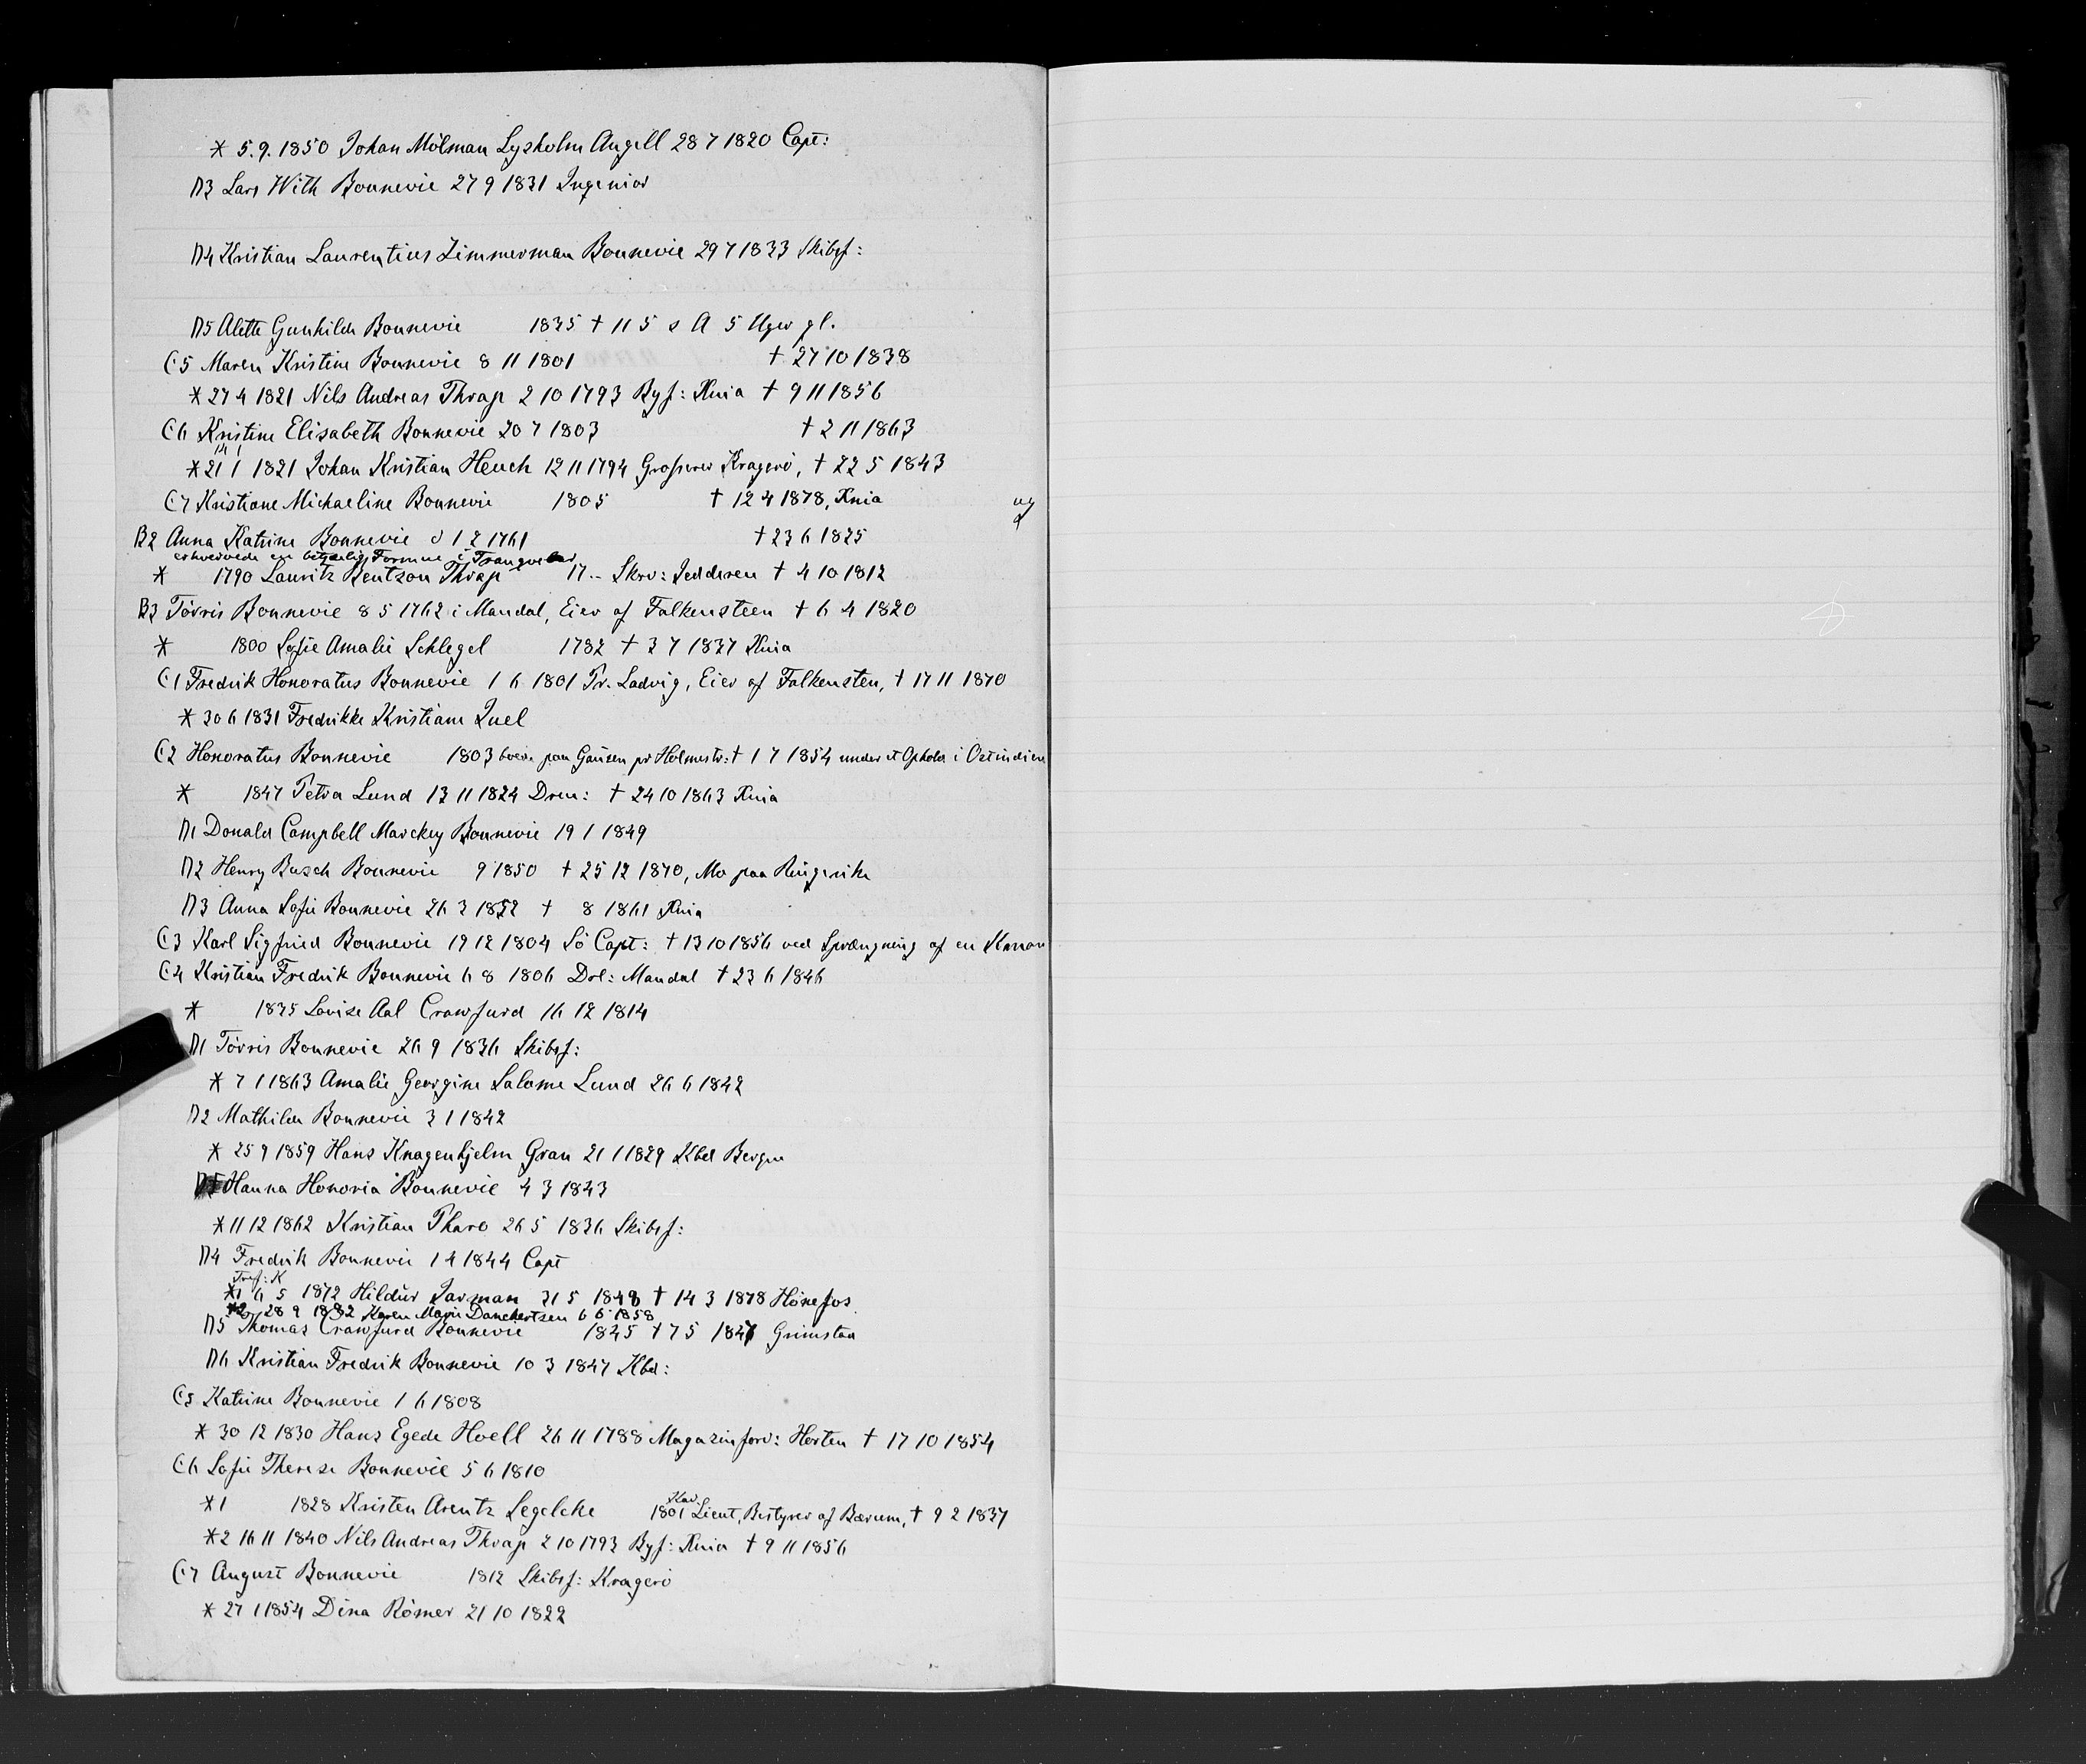 * 5.9.1850 Johan Mölman Lysholm Angell 28 7 1820 Capt:
D3 Lars With Bonnevie 27 9 1831 Ingeniør
D4 Kristian Laurentius Zimmerman Bonnevie 29 7 1833 Skibsf:
D5 Alette Gunhilda Bonnevie 1835 † 11 5 s A 5 Uger gl.
C5 Maren Kristine Bonnevie 8 11 1801 † 27 10 1838
* 27 4 1821 Nils Andreas Thrap 2 10 1793 Byf: Knia † 9 11 1856
C6 Kristine Elisabeth Bonnevie 20 7 1803 † 2 11 1863
* 21 1 1821 Johan Kristian Heuch 12 11 1794 Grosserer Kragerö, † 22 5 1843
C7 Kristiane Michaeline Bonnevie 1805 † 12 4 1878, Knia ug
B2 Anna Katrine Bonnevie d 1 2 1761 † 23 6 1825
erhvervede en betydelig Formue i Tranquebar
* 1790 Lauritz Bentzon Thrap 17.. Skrv: Jedderen † 4 10 1812
B3 Törris Bonnevie 8 5 1762 i Mandal, Eier af Falkensteen † 6 4 1820
* 1800 Sofie Amalie Schlegel 1782 † 3 7 1837 Knia
C1 Fredrik Honoratus Bonnevie 1 6 1801 Pr. Ladvig, Eier af Falkensten, † 17 11 1870
* 30 6 1831 Fredrikke Kristiane Juel
C2 Honoratus Bonnevie 1803 boede paa Gausen pr Holmestr: † 1 7 1854 under et Ophold i Ostindien
* 1847 Petra Lund 13 11 1824 Drm: † 24 10 1863 Knia
D1 Donald Campbell Marckey Bonnevie 19 1 1849
D2 Henry Busch Bonnevie 9 1850 † 25 12 1870, Mo paa Ringerike
D3 Anna Sofie Bonnevie 26 3 1852 † 8 1861 Knia
C3 Karl Sigfried Bonnevie 19 12 1804 Sö Capt: † 13 10 1856 ved Sprængning af en Kanon
C4 Kristian Fredrik Bonnevie 6 8 1806 Drl: Mandal † 23 6 1846
* 1835 Lovise Aal Crawfurd 16 12 1814
D1 Törris Bonnevie 26 9 1836 Skibsf:
* 7 1 1863 Amalie Georgine Salome Lund 26 6 1842
D2 Mathilda Bonnevie 3 1 1842
* 25 9 1859 Hans Knagenhjelm Gran 21 1 1829 Kbd Bergen
Hanna Honoria Bonnevie 4 3 1843
* 11 12 1862 Kristian Tharo 26 5 1836 Skibsf:
D4 Fredrik Bonnevie 1 4 1844 Capt
*1 6 5 1872 Hildur Jarman 31 5 1848 † 14 3 1878 Hönefos
*2 28 9 1882 Karen Marie Danchertsen 6 6 1858
D5 Thomas Crawfurd Bonnevie 1845 † 7 5 1847 Grimstad
D6 Kristian Fredrik Bonnevie 10 3 1847 Kbd:
C5 Katrine Bonnevie 1 6 1808
* 30 12 1830 Hans Egede Hvell 26 11 1788 Magazinforv: Horten † 17 10 1854
C6 Sofie Therese Bonnevie 5 6 1810
*1 1828 Kristen Arentz Segelcke 1801 Kav. Lieut, Bestyrer af Bærum, † 9 2 1837
*2 16 11 1840 Nils Andreas Thrap 2 10 1793 Byf: Knia † 9 11 1856
C7 August Bonnevie 1812 Skibsf: Kragerö
* 27 1 1854 Dina Römer 21 10 1822